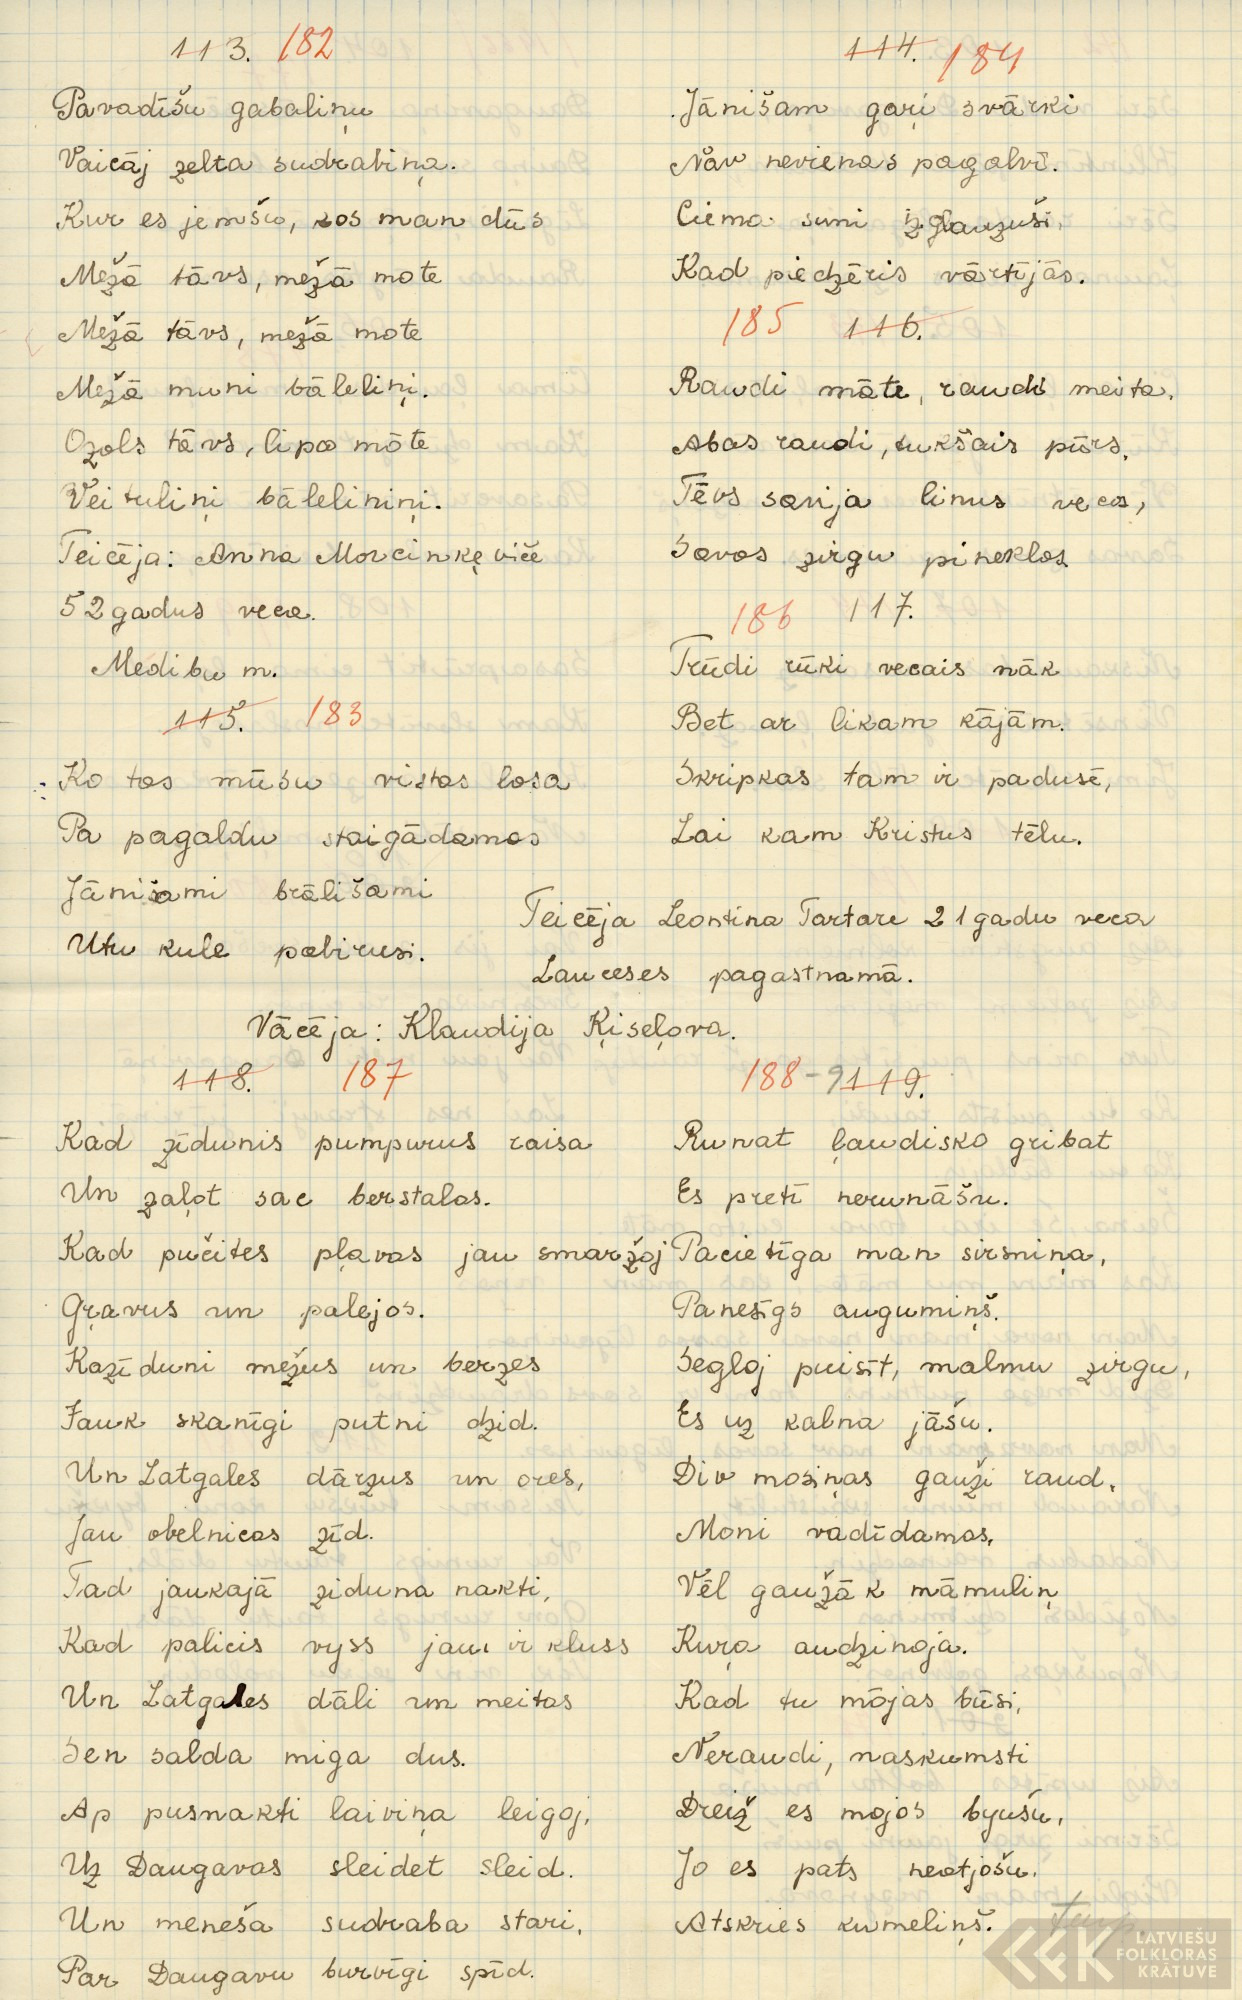 113. 182
Pavadīšu gabaliņu
Vaicāj zelta sudrabiņa.
Kur es jemšu, kos man dūs
Mežā tāvs, mežā mote
Mežā tāvs, mežā mote
Mežā muni bāleliņi.
Ozols tāvs, lipa mōte
Veituliņi bāleliniņi.
Teicēja: Anna Morcinkęviče
52 gadus veca.
Medibu m.
115. 183
Ko tos mūsu vistas losa
Pa pagaldu staigādamas
Jānišami brālišami
Utu kule pabirusi.
114. 184
Jānišam gaŗi svārki
Nav nevienas pogalvī.
Ciema suni izglauzuši,
Kad piedzēris vārtījās.
185 116.
Raudi māte, raudi meita,
Abas raudi, tukšais pūrs,
Tēvs savija linus vecos,
Savas zirgu pineklos
186 117.
Trūdi rūki vecais nāk
Bet ar likam kājām.
Skripkas tam ir padusē,
Lai kam Kristus tēlu.
Teicēja Leontina Tartare 21 gadu veca
Lauceses pagastnamā.
Vācēja: Klaudija Ķiseļova.
118. 187
Kad zīdunis pumpurus raisa
Un zaļot sac berstalas.
Kad pučites pļavas jau smaržoj
Gŗavus un palejos.
Kazīduni mežus un berzes
Jauk skanīgi putni dzid.
Un Latgales dārzus un ores,
Jau obelnicas zīd.
Tad jaukajā ziduna nakti,
Kad palicis vyss jau ir kluss
Un Latgales dāli un meitas
Sen salda miga dus.
Ap pusnakti laiviņa leigoj,
Uz Daugavas sleidet sleid.
Un meneša sudraba stari,
Par Daugavu burvīgi spīd.
188-9 119.
Runat ļaudisko gribat
Es pretī nerunāšu.
Pacietīga man sirsniņa,
Panesīgs augumiņš.
Segloj puisīt, malmu zirgu,
Es uz kalna jāšu.
Div mosiņas gauži raud,
Moni vadīdamas,
Vēl gaužāk māmuliņ
Kuŗa audzinoja.
Kad tu mōjas būsi,
Neraudi, naskumsti
Dreiž es mojos byušu,
Jo es pats neatjošu,
Atskries kumeliņš.
LATVIEŠU
FOLKLORAS
KRĀTUVE